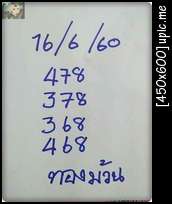 16/6/60
478
378
368
468
ทองม้วน
[450x600] upic.me